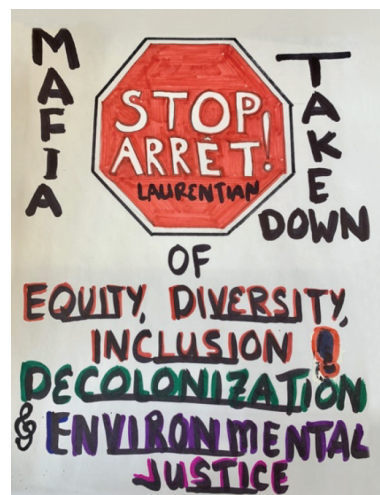 MAFIA
STOP
ARRÊT!
LAURENTIAN
TAKE
DOWN
OF
EQUITY, DIVERSITY,
INCLUSION !
DECOLONIZATION
& ENVIRONMENTAL
JUSTICE